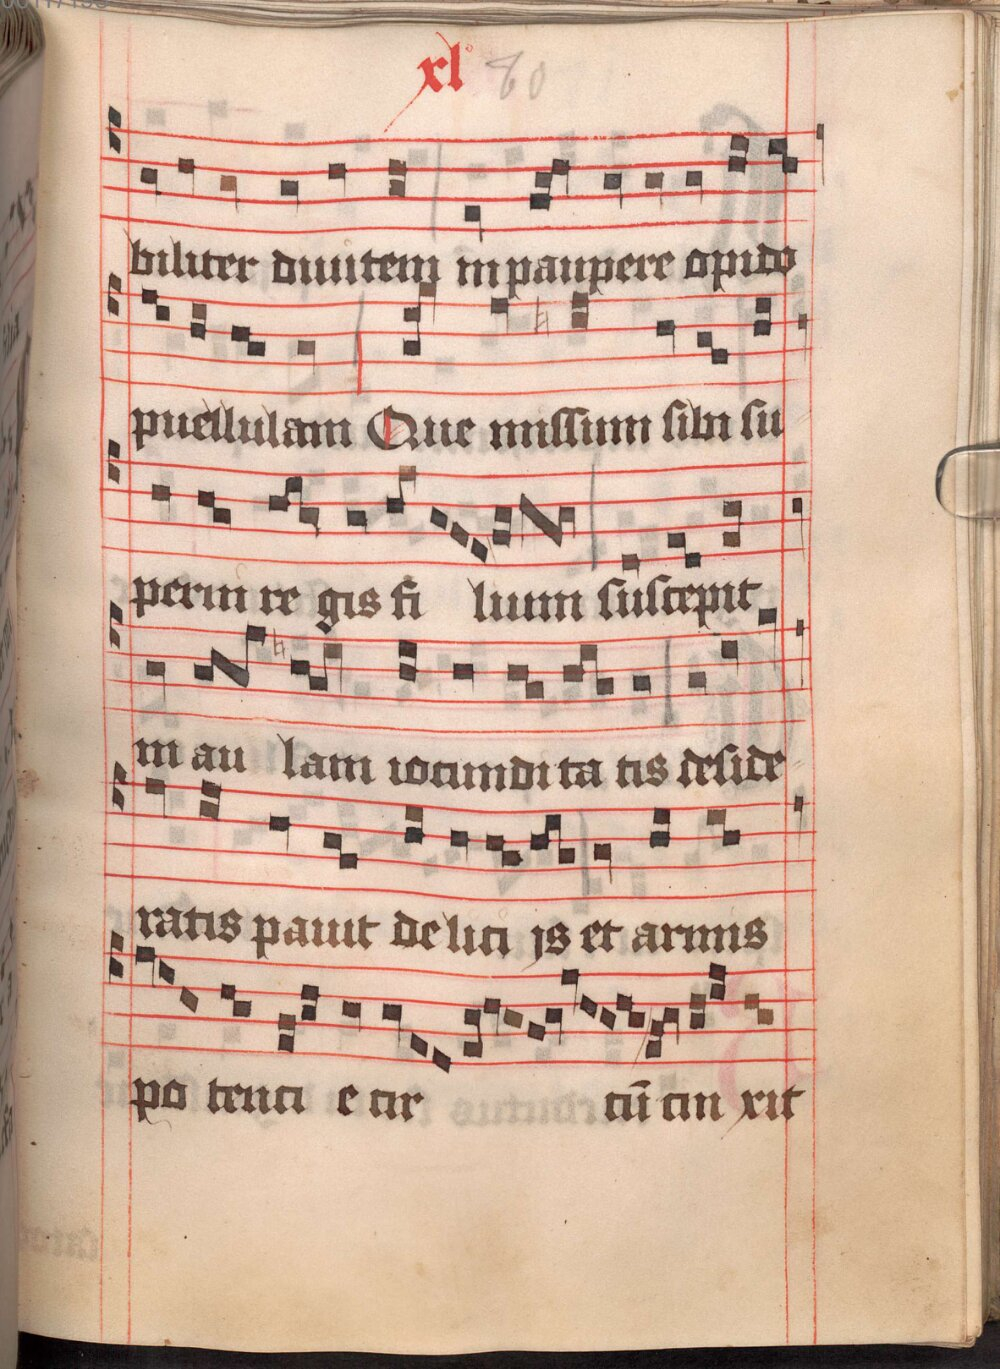 xl° 80
biliter diuitem in paupere opido
puellulam Que missum sibi su
perni re gis fi lium suscepit
in au lam iocundi ta tis deside
ratis pauit de lici js et armis
po tenci e cir cū cin xit